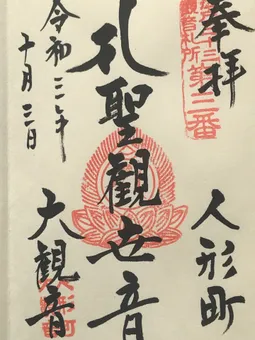 奉拝
三十三
観音札所第三番
人形町
聖觀世音
大觀音
令和二年
十月三日